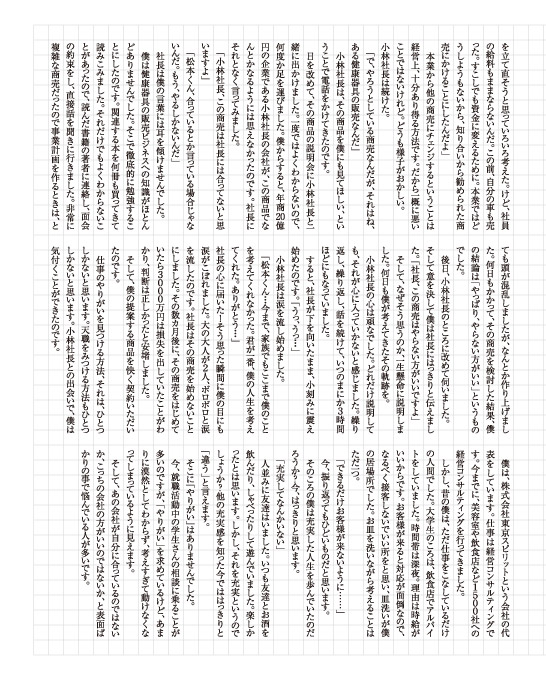 を立て直そうと思っているいろ考えた。けど、社員
の給料もままならないんだ。この前、自分の車も売
った。すこしでも資金に変えるために。本業ではど
うしようもないから、知り合いから勧められた商
売にかけることにしたんだよ」
　本業から他の商売にチェンジするということは
経営上、十分あり得る方法です。だから一概に悪い
ことではないけれど。どうも様子がおかしい。
　小林社長は続けた。
「で、やろうとしている商売なんだが、それはね、
ある健康器具の販売なんだ」
　小林社長は、その商品を僕にも見てほしい、とい
うことで電話をかけてきたのです。
　日を改めて、その商品の説明会に小林社長と一
緒に出かけました。一度ではよくわからないので、
何度か足を運びました。僕からすると、年商20億
円の企業である小林社長の会社が、この商品でな
んとかなるようには思えなかったのです。社長に
それとなく言ってみました。
「小林社長、この商売は社長には合ってないと思
いますよ」
「松本くん、合っているとか言っている場合じゃな
いんだ。もう、やるしかないんだ」
　社長は僕の言葉には耳を傾けませんでした。
　僕は健康器具の販売ビジネスへの知識がほとん
どありませんでした。そこで徹底的に勉強するこ
とにしたのです。関連する本を何冊も買ってきて
読みこみました。それだけでもよくわからないこ
とがあったので、読んだ書籍の著者に連絡し、面会
の約束をし、直接話を聞きに行きました。非常に
複雑な商売だったので事業計画を作るときは、と
ても頭が混乱しましたが、なんとか作り上げまし
た。何日もかかって、その商売を検討した結果、僕
の結論は「やっぱり、やらない方がいい」というもの
でした。
　後日、小林社長のところに改めて伺いました。
そして意を決して僕は社長にはっきりと伝えまし
た。「社長、この商売はやらない方がいいですよ」
　そして、なぜそう思うのか、一生懸命に説明しま
した。何日も僕が考えてきたその軌跡を。
　小林社長の心は頑なでした。どれだけ説明して
も、それが心に入っていかないと感じました。繰り
返し、繰り返し、話を続けて、いつのまにか3時間
ほどにもなっていました。
　すると、社長が下を向いたまま、小刻みに震え
始めたのです。「うっ、うっ…」
　小林社長は涙を流し始めました。
　「松本くん…今まで、家族でもここまで僕のこと
を考えてくれなかった。君が一番、僕の人生を考え
てくれた。ありがとう…」
　社長の心に届いた！そう思った瞬間に僕の目にも
涙がこぼれました。大の大人が2人、ボロボロと涙
を流したのです。社長はその商売を始めないこと
にしました。その数カ月後に、その商売をはじめて
いたら3000万円は損失を出していたことがわ
かり、判断は正しかったと安堵しました。
　そして、僕の提案する商品を快く契約いただい
たのです。
　仕事のやりがいを見つける方法、それは、ひとつ
しかないと思います。天職をみつける方法もひとつ
しかないと思います。小林社長との出会いで、僕は
気付くことができたのです。
　僕は、株式会社東京スピリットという会社の代
表をしています。仕事は経営コンサルティングで
す。今までに、美容室や飲食店など1500社への
経営コンサルティングを行ってきました。
　しかし、昔の僕は、ただ仕事をこなしているだけ
の人間でした。大学生のころは、飲食店でアルバイ
トをしていました。時間帯は深夜。理由は時給が
いいからです。お客様が来ると対応が面倒なので、
なるべく接客しないでいい所をと思い、皿洗いが僕
の居場所でした。お皿を洗いながら考えることは
ただ一つ。
「できるだけお客様が来ないように……」
　今、振り返ってもひどいものだと思います。
　そのころの僕は充実した人生を歩んでいたのだ
ろうか？今、はっきりと思います。
「充実してなんかいない」
　人並みに友達はいました。いつも友達とお酒を
飲んだり、しゃべったりして遊んでいました。楽しか
ったとは思います。しかし、それを充実というので
しょうか？他の充実感を知った今でははっきりと
「違う」と言えます。
　そこに「やりがい」はありませんでした。
　今、就職活動中の学生さんの相談に乗ることが
多いのですが、「やりがい」を求めているけど、あま
りに漠然としてわからず、考えすぎて動けなくな
ってしまっているように見えます。
　そして、あの会社が自分に合っているのではない
か、こっちの会社の方がいいのではないか、と表面ば
かりの事で悩んでいる人が多いです。